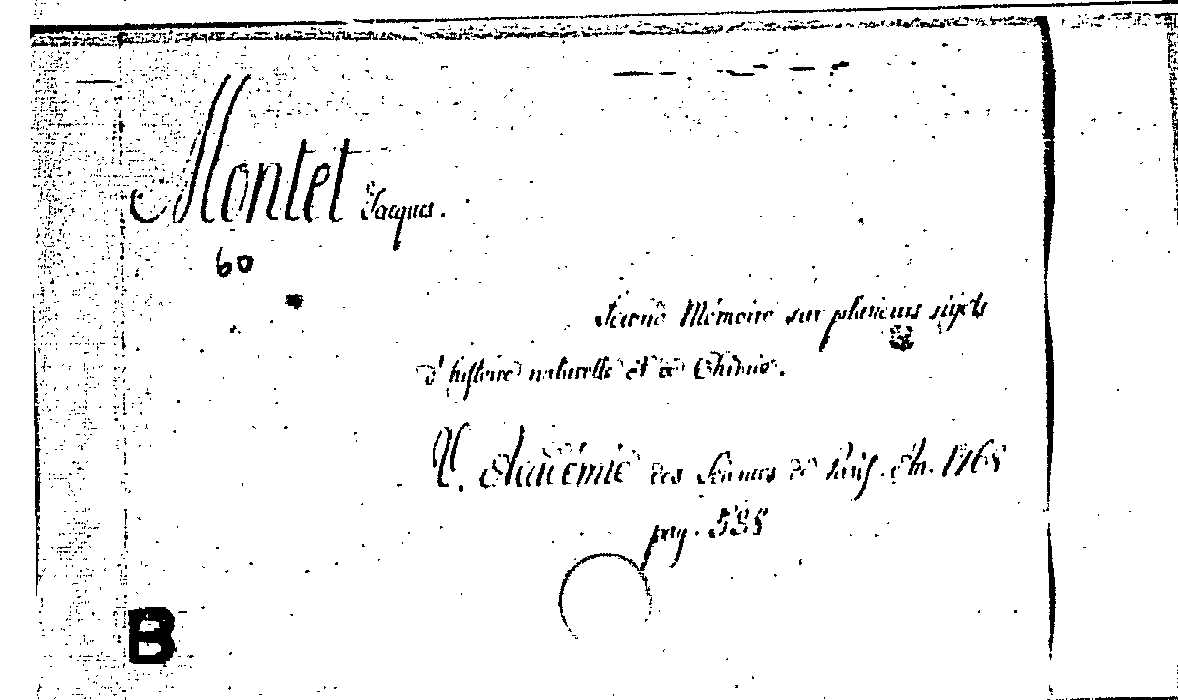 Montet Jacques.
60
Second Mémoire sur plusieurs sujets
d'histoire naturelle et de Chimie.
V. Académie des Sciences de Paris. An. 1768
pag. 538
B